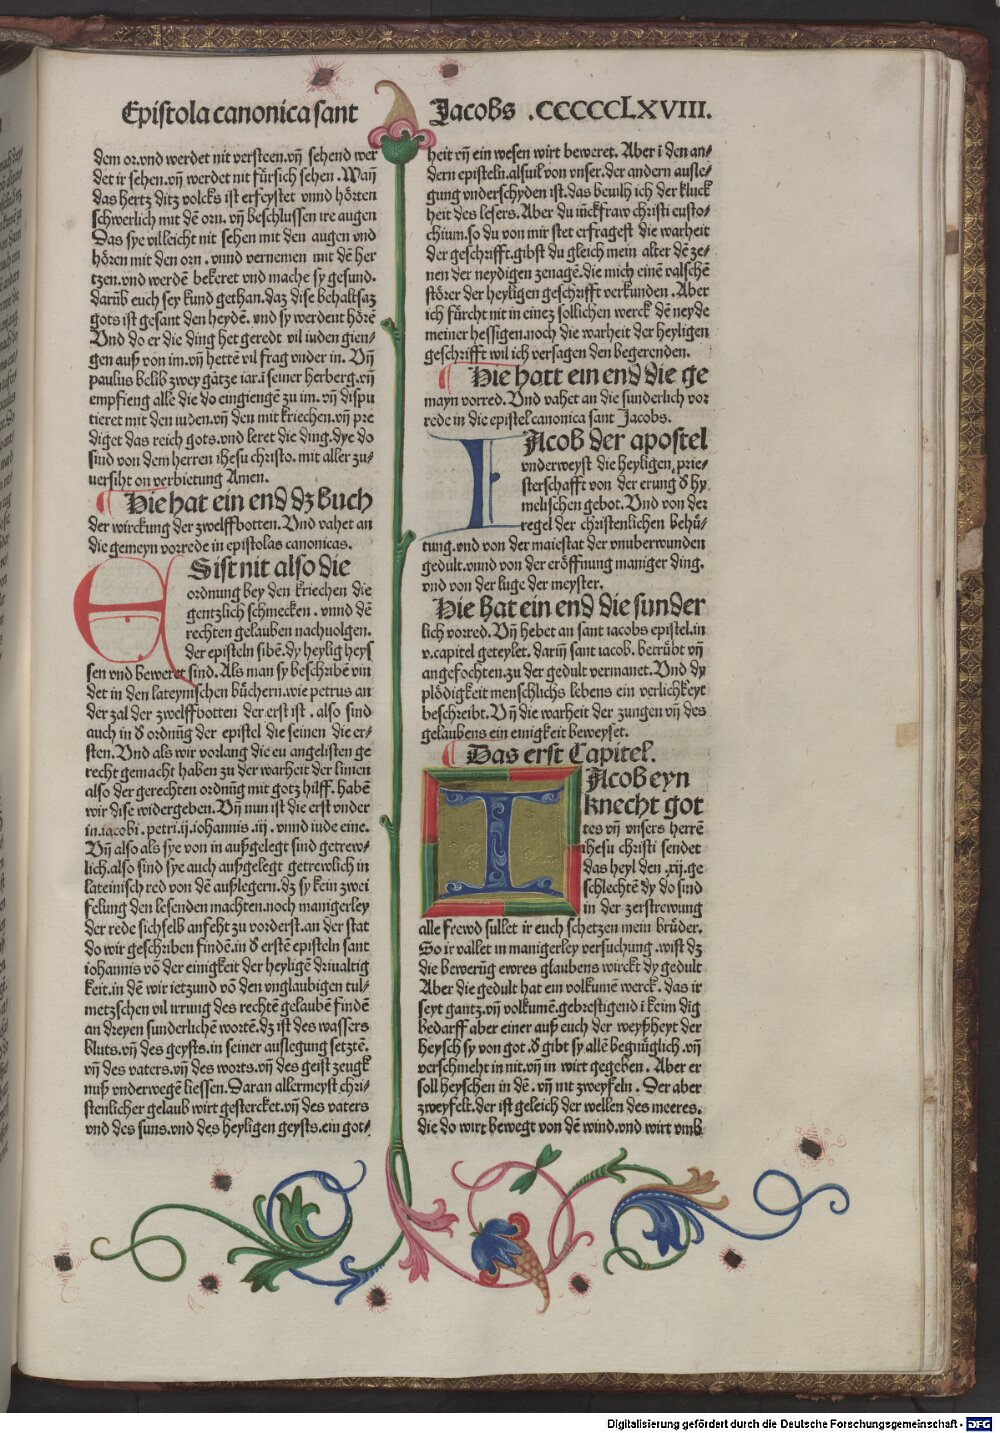 Epistola canonica sant Jacobs .CCCCCLXVIII.
dem or.vnd werdet nit versteen.vñ sehend wer
det ir sehen.vñ werdet nit fürsich sehen. Wañ
das hertz ditz volcks ist erfeystet vnnd hörten
schwerlich mit dē orn. vñ beschlussen ire augen
Das sye villeicht nit sehen mit den augen vnd
hören mit den orn. vnnd vernemen mit dē her
tzen.vnd werdē bekeret vnd mache sy gesund.
darūb euch sey kund gethan.daz dise behaltsaz
gots ist gesant den heydē. vnd sy werdent hörē
Vnd do er die ding het geredt vil iuden gien-
gen auß von im.vñ hettē vil frag vnder in. Vñ
paulus belib zwey gātze iar.ī seiner herberg.vñ
empfieng alle die do eingiengē zu im. vñ dispu
tieret mit den iuden.vñ den mit kriechen.vñ pre
diget das reich gots.vnd leret die ding.dye do
sind von dem herren ihesu christo. mit aller zu-
uersiht on verbietung Amen.
Hie hat ein end dz buch
der wirckung der zwelffbotten. Vnd vahet an
die gemeyn vorrede in epistolas canonicas.
ES ist nit also die
ordnung bey den kriechen die
gentzlich schmecken. vnnd dē
rechten gelauben nachuolgen.
der episteln sibē.dy heylig heys
sen vnd beweret sind. Als man sy beschribē vin
det in den lateynischen büchern.wie petrus an
der zal der zwelffbotten der erst ist. also sind
auch in d ordnūg der epistel die seinen die er-
sten. Vnd als wir vorlang die eu angelisten ge
recht gemacht haben zu der warheit der linien
also der gerechten ordnūg mit gotz hilff. habē
wir dise widergeben. Vñ nun ist die erst vnder
in.iacobi. petri.ij.iohannis.iij. vnnd iude eine.
Vñ also als sye von in außgelegt sind getrew-
lich.also sind sye auch außgelegt getrewlich in
lateinisch red von dē außlegern.dz sy kein zwei
felung den lesenden machten.noch manigerley
der rede sichselb anfeht zu vorderst.an der stat
do wir geschriben findē.in d erstē episteln sant
iohannis vō der einigkeit der heyligē driualtig
keit.in dē wir ietzund vō den vnglaubigen tul-
metzschen vil irrung des rechtē gelaubē findē
an dreyen sunderlichē wortē.dz ist des wassers
bluts.vñ des geysts.in seiner auslegung setztē.
vñ des vaters.vñ des worts.vñ des geist zeugk
nuß vnderwegē liessen. Daran allermeyst chri-
stenlicher gelaub wirt gestercket.vñ des vaters
vnd des suns.vnd des heyligen geysts.ein got-
heit vñ ein wesen wirt beweret. Aber ī den an-
dern episteln.alsuil von vnser.der andern ausle-
gung vnderschyden ist.das beuilh ich der kluck
heit des lesers. Aber du iūckfraw christi eusto-
chium.so du von mir stet erfragest die warheit
der geschrifft.gibst du gleich mein alter dē ze-
nen der neydigen zenagē.die mich einē valschē
störer der heyligen geschrifft verkunden. Aber
ich fürcht nit in einez sollichen werck dē neyde
meiner hessigen.noch die warheit der heyligen
geschrifft wil ich versagen den begerenden.
Hie hatt ein end die ge
mayn vorred. Vnd vahet an die sunderlich vor
rede in die epistel canonica sant Jacobs.
IAcob der apostel
vnderweyst die heyligen prie-
sterschafft von der erung d hy
melischen gebot. Vnd von der
regel der christenlichen behü-
tung.vnd von der maiestat der vnuberwunden
gedult.vnnd von der eröffnung maniger ding.
vnd von der luge der meyster.
Hie hat ein end die sunder
lich vorred. Vñ hebet an sant iacobs epistel.in
v.capitel geteylet. dariñ sant iacob. betrübt vñ
angefochten.zu der gedult vermanet. Vnd dy
plödigkeit menschlichs lebens ein verlichkeyt
beschreibt. Vñ die warheit der zungen vñ des
gelaubens ein einigkeit beweyset.
Das erst Capitel.
IAcob eyn
knecht got
tes vñ vnsers herrē
ihesu christi sendet
das heyl den .xij.ge
schlechtē dy do sind
in der zerstrewung
alle frewd sullet ir euch schetzen mein brüder.
So ir vallet in manigerley versuchung. wist dz
die bewerūg ewres glaubens wirckt dy gedult
Aber die gedult hat ein volkumē werck. das ir
seyt gantz.vñ volkumē.gebrestigend ī keim dig
bedarff aber einer auß euch der weyßheyt der
heysch sy von got. d gibt sy allē begnüglich. vñ
verschmeht in nit.vñ in wirt gegeben. Aber er
soll heyschen in dē. vñ nit zweyfeln. Der aber
zweyfelt.der ist geleich der wellen des meeres.
die do wirt bewegt von dē wind.vnd wirt vmb
Digitalisierung gefördert durch die Deutsche Forschungsgemeinschaft - DFG